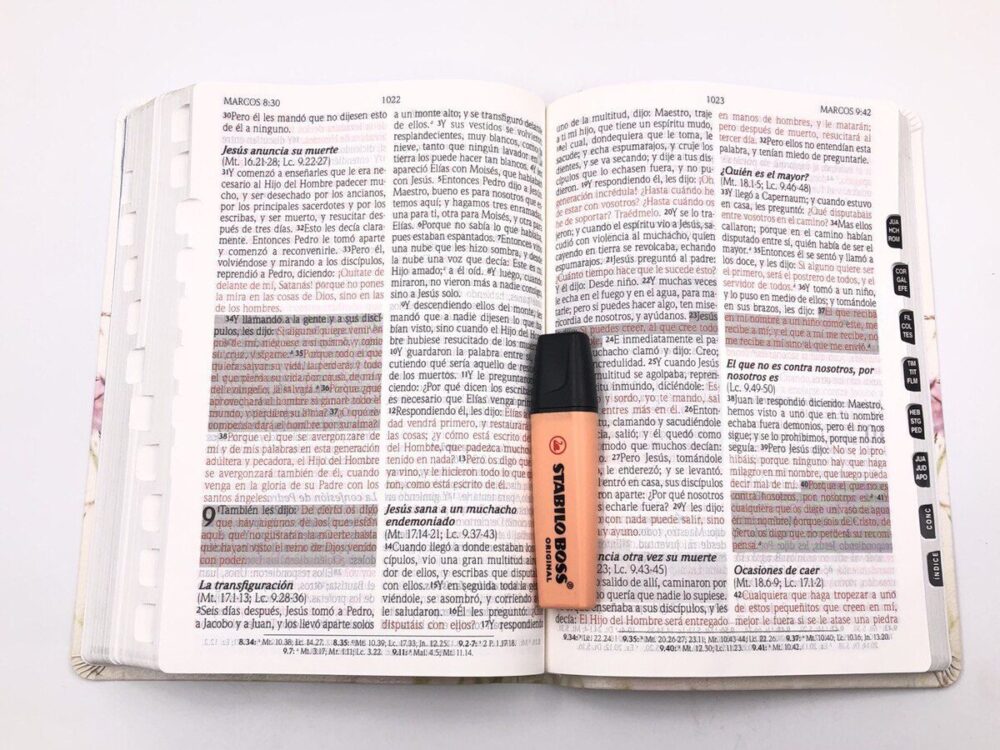 MARCOS 8:30
1022
30Pero él les mandó que no dijesen esto
de él a ninguno.
Jesús anuncia su muerte
(Mt. 16.21-28; Lc. 9.22-27)
31Y comenzó a enseñarles que le era ne-
cesario al Hijo del Hombre padecer mu-
cho, y ser desechado por los ancianos,
por los principales sacerdotes y por los
escribas, y ser muerto, y resucitar des-
pués de tres días. 32Esto les decía clara-
mente. Entonces Pedro le tomó aparte
y comenzó a reconvenirle. 33Pero él,
volviéndose y mirando a los discípulos,
reprendió a Pedro, diciendo: ¡Quítate de
delante de mí, Satanás! porque no pones
la mira en las cosas de Dios, sino en las
de los hombres.
34Y llamando a la gente y a sus discí-
pulos, les dijo: Si alguno quiere venir en
pos de mí, niéguese a sí mismo, y tome
su cruz, y sígame. 35Porque todo el que
quiera salvar su vida, la perderá; y todo
el que pierda su vida por causa de mí y
del evangelio, la salvará. 36Porque ¿qué
aprovechará al hombre si ganare todo el
mundo, y perdiere su alma? 37¿O qué re-
compensa dará el hombre por su alma?
38Porque el que se avergonzare de
mí y de mis palabras en esta generación
adúltera y pecadora, el Hijo del Hombre
se avergonzará también de él, cuando
venga en la gloria de su Padre con los
santos ángeles.
9 También les dijo: De cierto os digo
que hay algunos de los que están
aquí, que no gustarán la muerte hasta
que hayan visto el reino de Dios venido
con poder.
La transfiguración
(Mt. 17.1-13; Lc. 9.28-36)
2Seis días después, Jesús tomó a Pedro,
a Jacobo y a Juan, y los llevó aparte solos
a un monte alto; y se transfiguró delante
de ellos. 3Y sus vestidos se volvieron
resplandecientes, muy blancos, como la
nieve, tanto que ningún lavador en la
tierra los puede hacer tan blancos. 4Y les
apareció Elías con Moisés, que hablaban
con Jesús. 5Entonces Pedro dijo a Jesús:
Maestro, bueno es para nosotros que es-
temos aquí; y hagamos tres enramadas,
una para ti, otra para Moisés, y otra para
Elías. 6Porque no sabía lo que hablaba,
pues estaban espantados. 7Entonces vino
una nube que les hizo sombra, y desde
la nube una voz que decía: Este es mi
Hijo amado; a él oíd. 8Y luego, cuando
miraron, no vieron más a nadie consigo,
sino a Jesús solo.
9Y descendiendo ellos del monte, les
mandó que a nadie dijesen lo que ha-
bían visto, sino cuando el Hijo del Hom-
bre hubiese resucitado de los muertos.
10Y guardaron la palabra entre sí, dis-
cutiendo qué sería aquello de resucitar
de los muertos. 11Y le preguntaron, di-
ciendo: ¿Por qué dicen los escribas que
es necesario que Elías venga primero?
12Respondiendo él, les dijo: Elías a la ver-
dad vendrá primero, y restaurará todas
las cosas; ¿y cómo está escrito del Hijo
del Hombre, que padezca mucho y sea
tenido en nada? 13Pero os digo que Elías
ya vino, y le hicieron todo lo que quisie-
ron, como está escrito de él.
Jesús sana a un muchacho
endemoniado
(Mt. 17.14-21; Lc. 9.37-43)
14Cuando llegó a donde estaban los dis-
cípulos, vio una gran multitud alrede-
dor de ellos, y escribas que disputaban
con ellos. 15Y en seguida toda la gente,
viéndole, se asombró, y corriendo a él,
le saludaron. 16Él les preguntó: ¿Qué
disputáis con ellos? 17Y respondiendo
8.34: Mt. 10.38; Lc. 14.27. 8.35: Mt. 10.39; Lc. 17.33; Jn. 12.25. 9.2-7: 2 P. 1.17,18.
9.7: Mt. 3.17; Mr. 1.11; Lc. 3.22. 9.11: Mal. 4.5; Mt. 11.14.
1023
MARCOS 9:42
uno de la multitud, dijo: Maestro, traje
a ti mi hijo, que tiene un espíritu mudo,
el cual, dondequiera que le toma, le
sacude; y echa espumarajos, y cruje los
dientes, y se va secando; y dije a tus discí-
pulos que lo echasen fuera, y no pu-
dieron. 19Y respondiendo él, les dijo: ¡Oh
generación incrédula! ¿Hasta cuándo he
de estar con vosotros? ¿Hasta cuándo os
he de soportar? Traédmelo. 20Y se lo tra-
jeron; y cuando el espíritu vio a Jesús, sa-
cudió con violencia al muchacho, quien
cayendo en tierra se revolcaba, echando
espumarajos. 21Jesús preguntó al padre:
¿Cuánto tiempo hace que le sucede esto?
Y él dijo: Desde niño. 22Y muchas veces
le echa en el fuego y en el agua, para ma-
tarle; pero si puedes hacer algo, ten mise-
ricordia de nosotros, y ayúdanos. 23Jesús
puedes creer, al que cree todo
24E inmediatamente el pa-
muchacho clamó y dijo: Creo;
incredulidad. 25Y cuando Jesús
multitud se agolpaba, repren-
espíritu inmundo, diciéndole: Es-
y sordo, yo te mando, sal
entres más en él. 26Enton-
clamando y sacudiéndole
salió; y él quedó como
modo que muchos decían:
27Pero Jesús, tomándole
le enderezó; y se levantó.
entró en casa, sus discípulos
aparte: ¿Por qué nosotros
echarle fuera? 29Y les dijo:
con nada puede salir, sino
y ayuno.
otra vez su muerte
23; Lc. 9.43-45)
salido de allí, caminaron por
quería que nadie lo supiese.
enseñaba a sus discípulos, y les
decía: El Hijo del Hombre será entregado
en manos de hombres, y le matarán;
pero después de muerto, resucitará al
tercer día. 32Pero ellos no entendían esta
palabra, y tenían miedo de preguntarle.
¿Quién es el mayor?
(Mt. 18.1-5; Lc. 9.46-48)
33Y llegó a Capernaum; y cuando estuvo
en casa, les preguntó: ¿Qué disputabais
entre vosotros en el camino? 34Mas ellos
callaron; porque en el camino habían
disputado entre sí, quién había de ser el
mayor. 35Entonces él se sentó y llamó a
los doce, y les dijo: Si alguno quiere ser
el primero, será el postrero de todos, y el
servidor de todos. 36Y tomó a un niño,
y lo puso en medio de ellos; y tomándole
en sus brazos, les dijo: 37El que reciba
en mi nombre a un niño como este, me
recibe a mí; y el que a mí me recibe, no
me recibe a mí sino al que me envió.
El que no es contra nosotros, por
nosotros es
(Lc. 9.49-50)
38Juan le respondió diciendo: Maestro,
hemos visto a uno que en tu nombre
echaba fuera demonios, pero él no nos
sigue; y se lo prohibimos, porque no nos
seguía. 39Pero Jesús dijo: No se lo pro-
hibáis; porque ninguno hay que haga
milagro en mi nombre, que luego pueda
decir mal de mí. 40Porque el que no es
contra nosotros, por nosotros es. 41Y
cualquiera que os diere un vaso de agua
en mi nombre, porque sois de Cristo, de
cierto os digo que no perderá su recom-
pensa.
Ocasiones de caer
(Mt. 18.6-9; Lc. 17.1-2)
42Cualquiera que haga tropezar a uno
de estos pequeñitos que creen en mí,
mejor le fuera si se le atase una piedra
9.34: Lc. 22.24. 9.35: Mt. 20.26-27; 23.11; Mr. 10.43-44; Lc. 22.26. 9.37: Mt. 10.40; Lc. 10.16; Jn. 13.20.
9.40: Mt. 12.30; Lc. 11.23. 9.41: Mt. 10.42.
JUA
HCH
ROM
COR
GAL
EFE
FIL
COL
TES
TIM
TIT
FLM
HEB
STG
PED
JUA
JUD
APO
CONC
ÍNDICE
STABILO BOSS
ORIGINAL